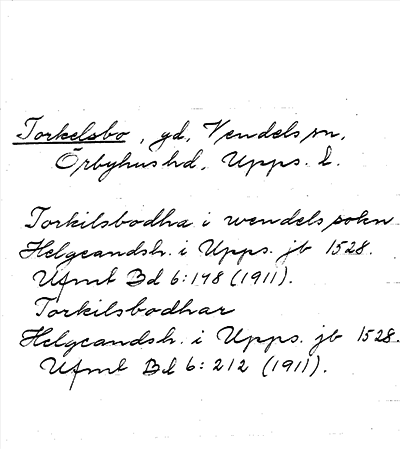 Torkelsbo, gd, Vendels sn,
Örbyhus hd, Upps. l.
Torkilsbodha i wendels sokn
Helgeandsh. i Upps. jb 1528.
Ufmt Bd 6:148 (1911).
Torkilsbodhar
Helgeandsh. i Upps. jb 1528.
Ufmt Bd 6:212 (1911).